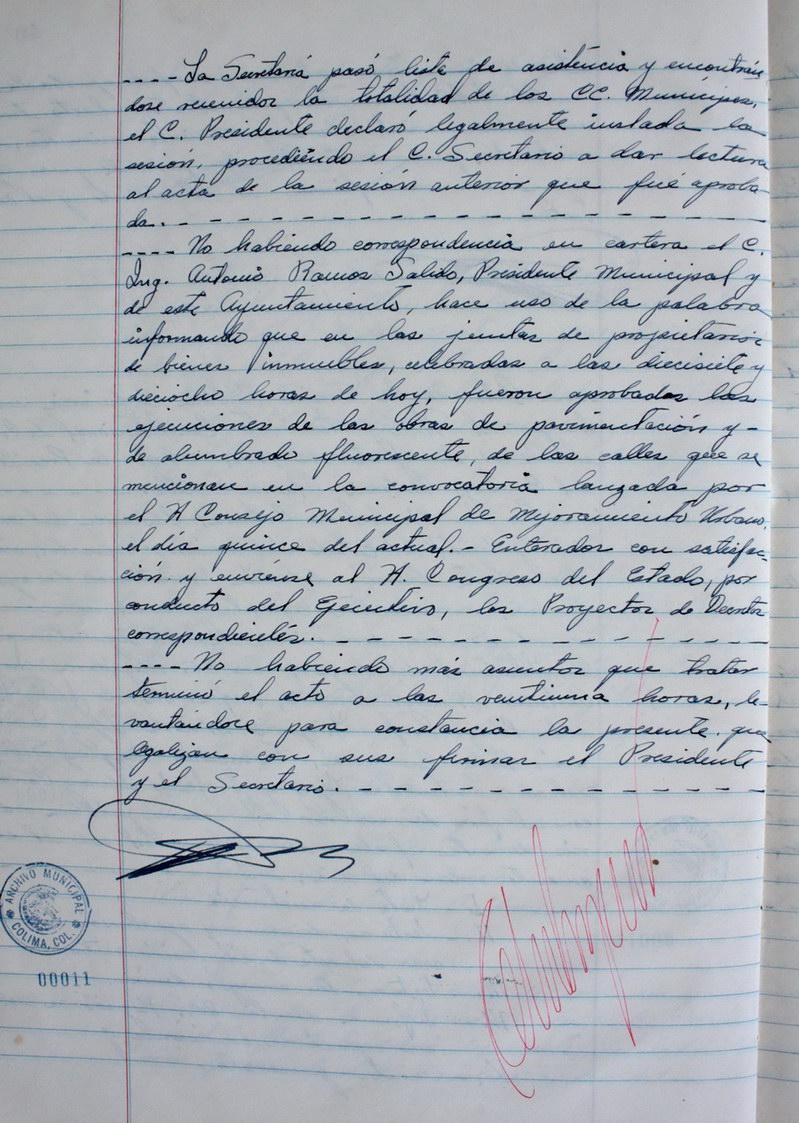 ---- La Secretaría pasó lista de asistencia y encontrán
dose reunidos la totalidad de los CC. Munícipes,
el C. Presidente declaró legalmente instalada la
sesión, procediendo el C. Secretario a dar lectura
al acta de la sesión anterior que fué aproba
da. - - - - - - - - - - - - - - - - - - - -
---- No habiendo correspondencia en cartera el C.
Ing. Antonio Ramos Salido, Presidente Municipal y
de este Ayuntamiento, hace uso de la palabra
informando que en las juntas de propietarios
de bienes inmuebles, celebradas a las diecisiete y
dieciocho horas de hoy, fueron aprobadas las
ejecuciones de las obras de pavimentación y -
de alumbrado fluorescente, de las calles que se
mencionan en la convocatoria lanzada por
el H Consejo Municipal de Mejoramiento Urbano,
el día quince del actual. - Enterados con satisfac-
ción y envíense al H. Congreso del Estado, por
conducto del Ejecutivo, los Proyectos de Decretos
correspondientes. - - - - - - - - - - - - - -
---- No habiendo más asuntos que tratar
terminó el acto a las ventiuna horas, le-
vantándose para constancia la presente que
legalizan con sus firmas el Presidente
y el Secretario. - - - - - - - - - - - - - -
ARCHIVO MUNICIPAL
COLIMA, COL.
00011